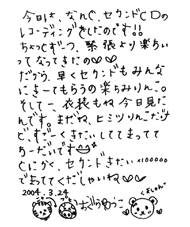 今日は、なんと、セカンドCDの
レコーディングをしたのです!!
ちょっとずつ、緊張より楽ちい
ってなってきたの♡♡
だから、早くセカンドもみんな
にきーてもらうの楽ちみりんこ。
そして、衣装もね 今日見た
んです。まだね、ヒミツりんこだけ
ど、すごーくきたいしててまってて
ちーだいです
とにかく、セカンドきたい
でまっててくだしゃいね♡♡
2004.3.24